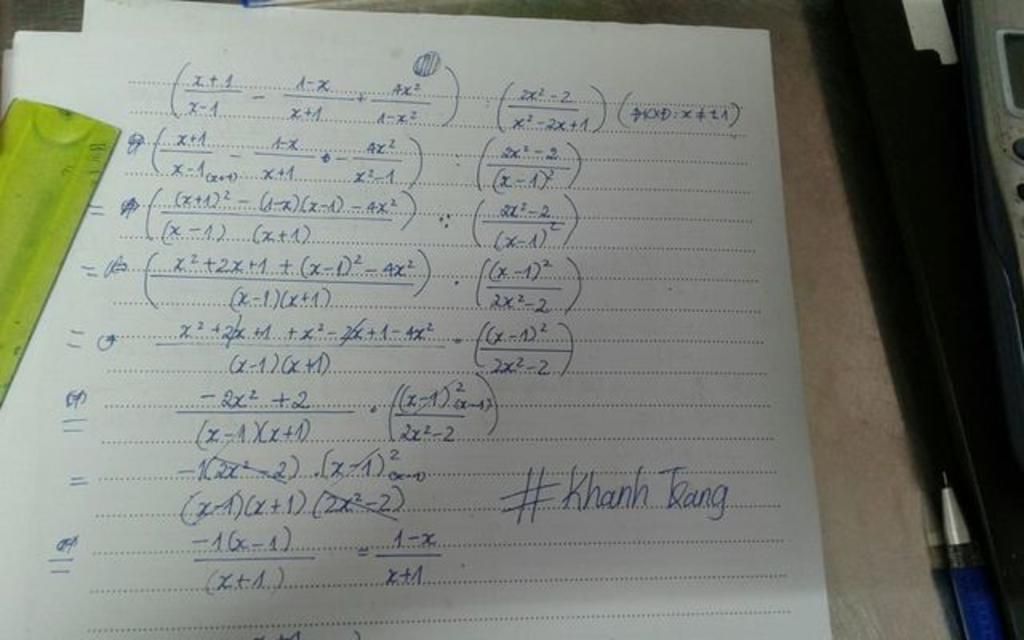 (x+1/x-1 - 1-x/x+1 + 4x²/1-x²) : (2x²-2/x²-2x+1) (ĐKXĐ: x ≠ ±1)
(x+1/x-1 (x+1) - 1-x/x+1 - 4x²/x²-1) : (2x²-2/(x-1)²)
= ((x+1)² - (1-x)(x-1) - 4x²/(x-1) (x+1)) : (2x²-2/(x-1)²)
= (x²+2x+1 + (x-1)² - 4x²/(x-1)(x+1)) . ((x-1)²/2x²-2)
= x²+2x+1 + x²-2x+1-4x²/(x-1)(x+1) . ((x-1)²/2x²-2)
= -2x²+2/(x-1)(x+1) . ((x-1)² (x-1)/2x²-2)
= -1(2x²-2).(x-1)² (x-1)/(x-1)(x+1)(2x²-2)
# Khanh Trang
= -1(x-1)/(x+1) = 1-x/x+1